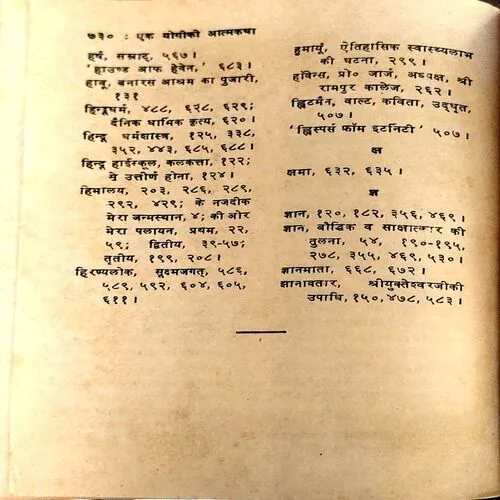 ७३० : एक योगीकी आत्मकथा
हर्ष, सम्राट्, ५६७ ।
'हाउण्ड आफ हेवेन,' ६८३ ।
हाबू, बनारस आश्रम का पुजारी,
१३१
हिन्दूधर्म, ४८८, ६२८, ६२९;
दैनिक धार्मिक कृत्य, ६२० ।
हिन्दू धर्मशास्त्र, १२५, ३३८,
३५२, ४४३, ६८५, ६८८ ।
हिन्दू हाईस्कूल, कलकत्ता, १२२;
से उत्तीर्ण होना, १२४ ।
हिमालय, २०३, २८६, २८९,
२९२, ४२९; के नजदीक
मेरा जन्मस्थान, ४; की ओर
मेरा पलायन, प्रथम, २२,
५९; द्वितीय, ३९-५७;
तृतीय, १९९, २०८ ।
हिरण्यलोक, सूक्ष्मजगत्, ५८६,
५८९, ५९२, ६०४, ६०५,
६११ ।
हुमायूं, ऐतिहासिक स्वास्थ्यलाभ
की घटना, २९९ ।
हॉवेन्स, प्रो० जार्ज, अध्यक्ष, श्री
रामपुर कालेज, २६२ ।
ह्विटमैन, वाल्ट, कविता, उद्धृत,
५०७ ।
'ह्विस्पर्स फ्रॉम इटर्निटी' ५०७ ।
क्ष
क्षमा, ६३२, ६३५ ।
ज्ञ
ज्ञान, १२०, १८२, ३५६, ४६९ ।
ज्ञान, बौद्धिक व साक्षात्कार की
तुलना, ५४, १९०-१९५,
२७८, ३५५, ४६९, ५३० ।
ज्ञानमाता, ६६८, ६७२ ।
ज्ञानावतार, श्रीयुक्तेश्वरजीकी
उपाधि, १५०, ४७८, ५८३ ।